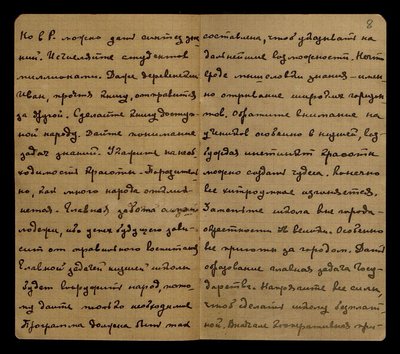 8
Но в Р. можно дать синтез зна-
ний. Исчисляйте студентов
миллионами. Даже деревенский
Иван, прочтя книгу, отправится
за другой. Сделайте книгу доступ-
ной народу. Дайте понимание
задач знаний. Ударите на необ-
ходимость красоты. Поразитель-
но, как много народа отклик-
нется. Главная забота о
молодежи, ибо успех будущего зави-
сит от правильного воспитания
Главной задачей низшей школы
будет вооружить народ, пото-
му дайте только необходимое
Программа должна быть так
составлена, чтоб указывать на
дальнейшие возможности. Нечто
вроде мышловки знания – имен-
но открывание широких горизон-
тов. Обратите внимание на
учеников особенно в низшей, воз-
буждая инстинкт красоты
можно создать чудеса. Конечно
все нетрудное изгоняется.
Заметьте школа вне города-
обязательности не велика. Особенно
все приюты за городом. Дать
образование главная задача Госу-
дарства. Напрягайте все силы,
чтоб сделать школу бесплат-
ной. Вначале кооперативная при-